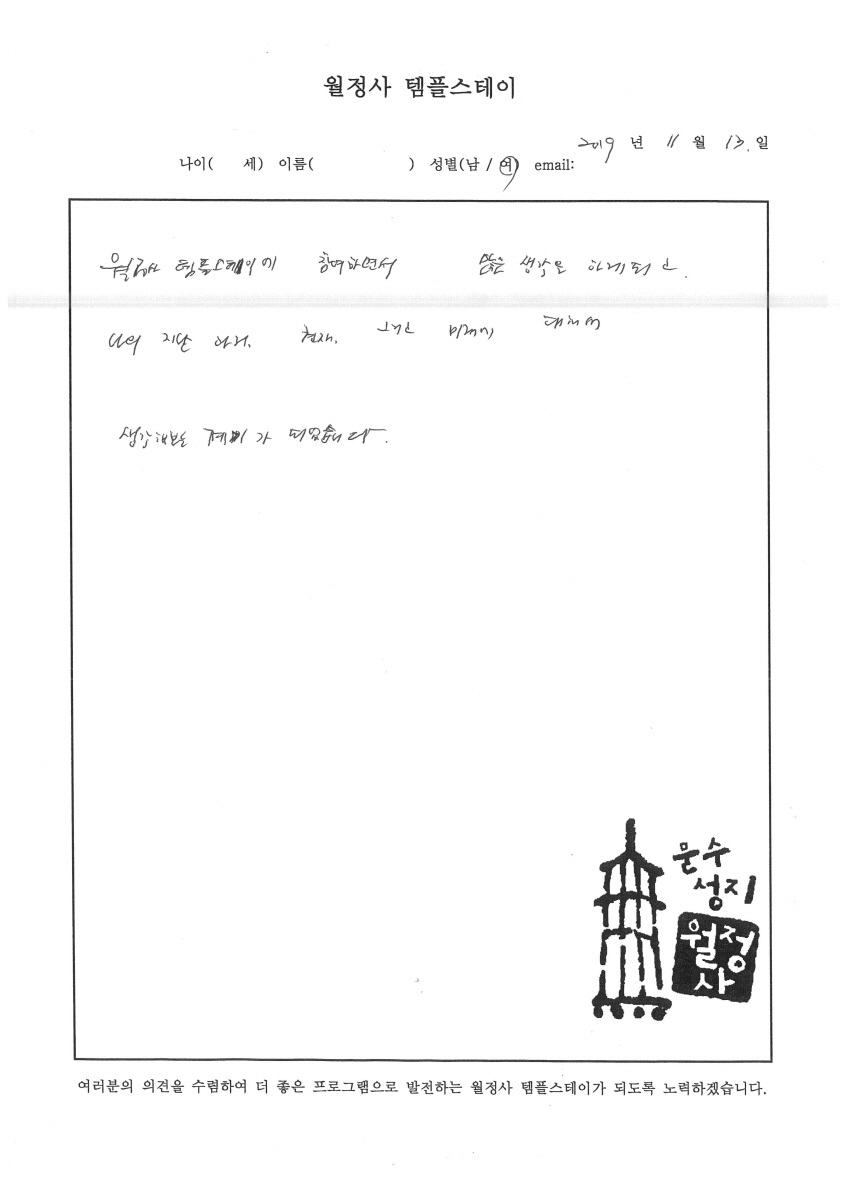 월정사 템플스테이
2019 년 11 월 13. 일
나이( 세) 이름( ) 성별(남 / 여) email:
월정사 템플스테이에 참여하면서 많은 생각을 하게되고.
나의 지난 과거. 현재. 그리고 미래에 대해서
생각해보는 계기가 되었습니다.
문수
성지
월정
사
여러분의 의견을 수렴하여 더 좋은 프로그램으로 발전하는 월정사 템플스테이가 되도록 노력하겠습니다.